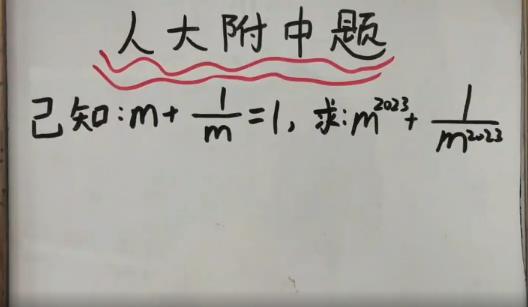 人大附中题
已知:m+1/m=1, 求:m²⁰²³+1/m²⁰²³